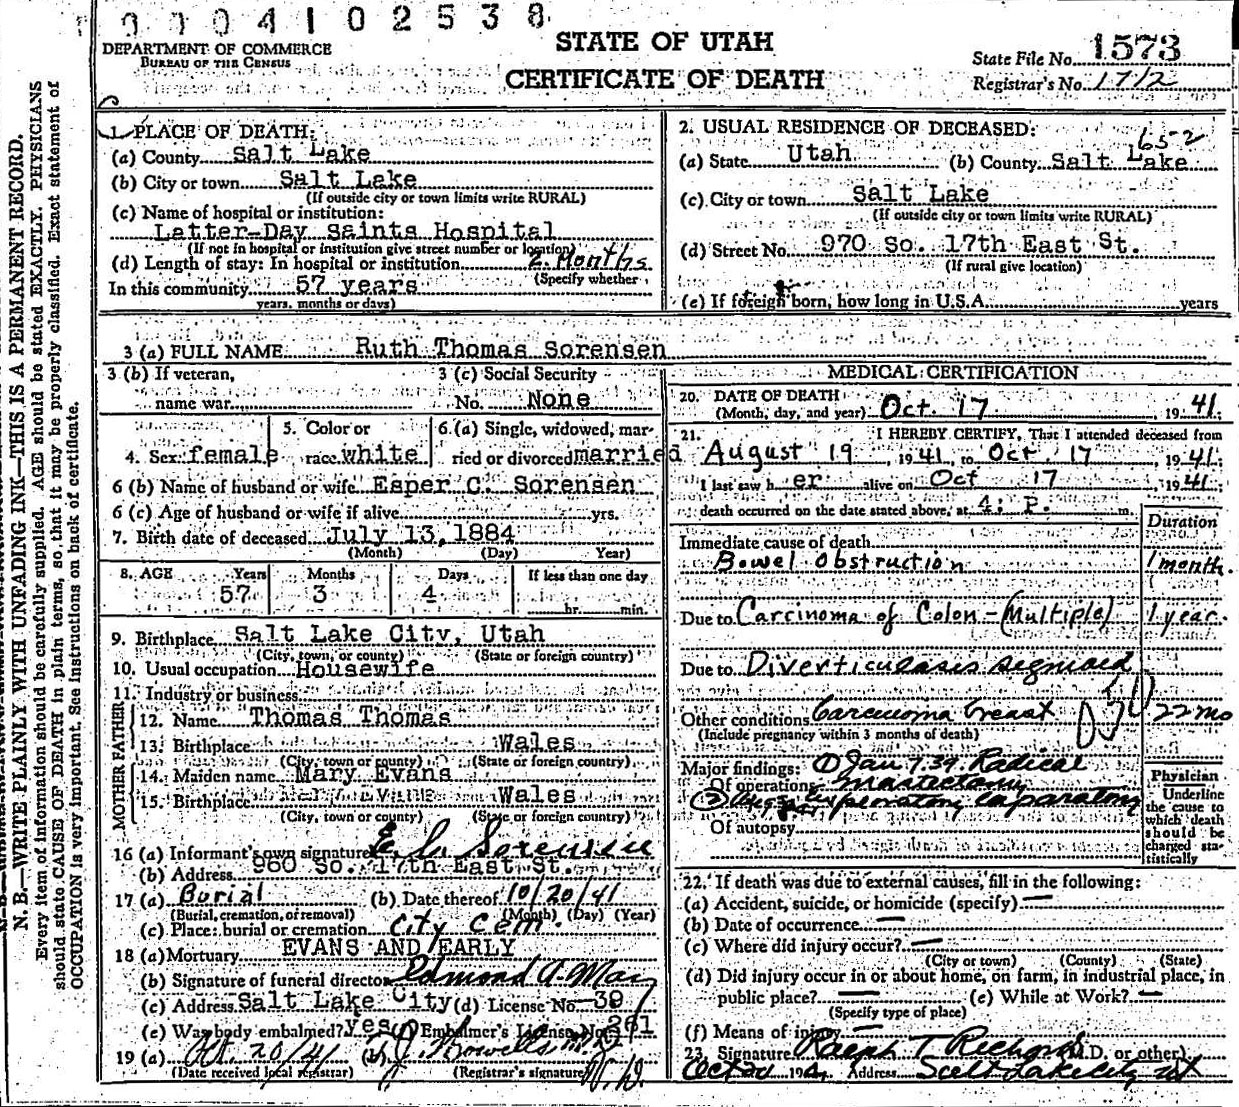 0004102538
DEPARTMENT OF COMMERCE
BUREAU OF THE CENSUS
STATE OF UTAH
CERTIFICATE OF DEATH
State File No. 1573
Registrar's No. 1712
N. B.—WRITE PLAINLY WITH UNFADING INK—THIS IS A PERMANENT RECORD.
Every item of information should be carefully supplied. AGE should be stated EXACTLY. PHYSICIANS
should state CAUSE OF DEATH in plain terms, so that it may be properly classified. Exact statement of
OCCUPATION is very important. See instructions on back of certificate.
1. PLACE OF DEATH:
(a) County Salt Lake
(b) City or town Salt Lake
(If outside city or town limits write RURAL)
(c) Name of hospital or institution:
Latter-Day Saints Hospital
(If not in hospital or institution give street number or location)
(d) Length of stay: In hospital or institution 2 Months
(Specify whether
In this community 57 years
years, months or days)
2. USUAL RESIDENCE OF DECEASED:
65-2
(a) State Utah (b) County Salt Lake
(c) City or town Salt Lake
(If outside city or town limits write RURAL)
(d) Street No. 970 So. 17th East St.
(If rural give location)
(e) If foreign born, how long in U.S.A. years
3 (a) FULL NAME Ruth Thomas Sorensen
3 (b) If veteran, 3 (c) Social Security
name war No. None
4. Sex female 5. Color or race white 6. (a) Single, widowed, married or divorced married
6 (b) Name of husband or wife Esper C. Sorensen
6 (c) Age of husband or wife if alive yrs.
7. Birth date of deceased July 13, 1884
(Month) (Day) Year)
8. AGE Years Months Days If less than one day
57 3 4 hr. min.
9. Birthplace Salt Lake City, Utah
(City, town, or county) (State or foreign country)
10. Usual occupation Housewife
11. Industry or business
FATHER
12. Name Thomas Thomas
13. Birthplace Wales
(City, town or county) (State or foreign country)
MOTHER
14. Maiden name Mary Evans
15. Birthplace Wales
(City, town or county) (State or foreign country)
16 (a) Informant's own signature E. C. Sorensen
(b) Address 960 So. 17th East St.
17 (a) Burial (b) Date thereof 10/20/41
(Burial, cremation, or removal) (Month) (Day) (Year)
(c) Place: burial or cremation City Cem.
18 (a) Mortuary EVANS AND EARLY
(b) Signature of funeral director Edmond A. May
(c) Address Salt Lake City (d) License No. 39
(e) Was body embalmed? yes (f) Embalmer's License No. 361
19 (a) Oct. 20/41 (b) Howells M.D.
(Date received local registrar) (Registrar's signature)
MEDICAL CERTIFICATION
20. DATE OF DEATH
(Month, day, and year) Oct. 17 1941
21. I HEREBY CERTIFY, That I attended deceased from
August 19, 1941, to Oct. 17, 1941.
I last saw her alive on Oct 17 1941
death occurred on the date stated above, at 4: P. m.
Duration
Immediate cause of death
Bowel Obstruction 1 month.
Due to Carcinoma of Colon-(Multiple) 1 year.
Due to Diverticulasis sigmoid
Other conditions Carcinoma breast 22 mo
(Include pregnancy within 3 months of death)
Major findings: ① Jan 7 39 Radical
Of operations mastectomy
② Aug exploratory laparatomy
Of autopsy
Physician
Underline
the cause to
which death
should be
charged sta-
tistically
22. If death was due to external causes, fill in the following:
(a) Accident, suicide, or homicide (specify) —
(b) Date of occurrence —
(c) Where did injury occur? —
(City or town) (County) (State)
(d) Did injury occur in or about home, on farm, in industrial place, in
public place? — (e) While at Work? —
(Specify type of place)
(f) Means of injury —
23. Signature Ralph T Richards (M.D. or other)
Oct 20 194 Address Salt Lake City, Ut